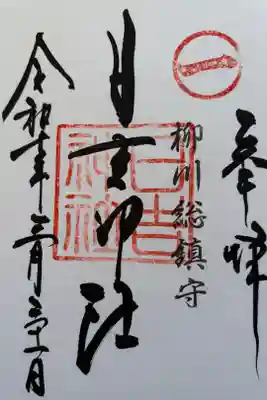 奉拝
柳川総鎮守
日吉神社
日吉神社
令和七年三月三十一日